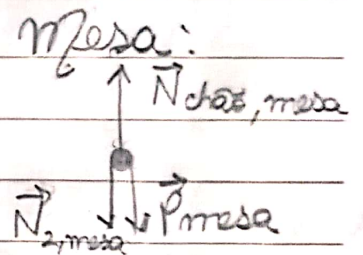 Mesa:
N⃗ chão, mesa
N⃗ 2, mesa P⃗ mesa